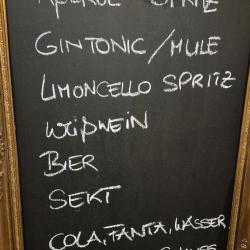 APEROL SPRITZ
GINTONIC/MULE
LIMONCELLO SPRITZ
WEIßWEIN
BIER
SEKT
COLA, FANTA, WASSER